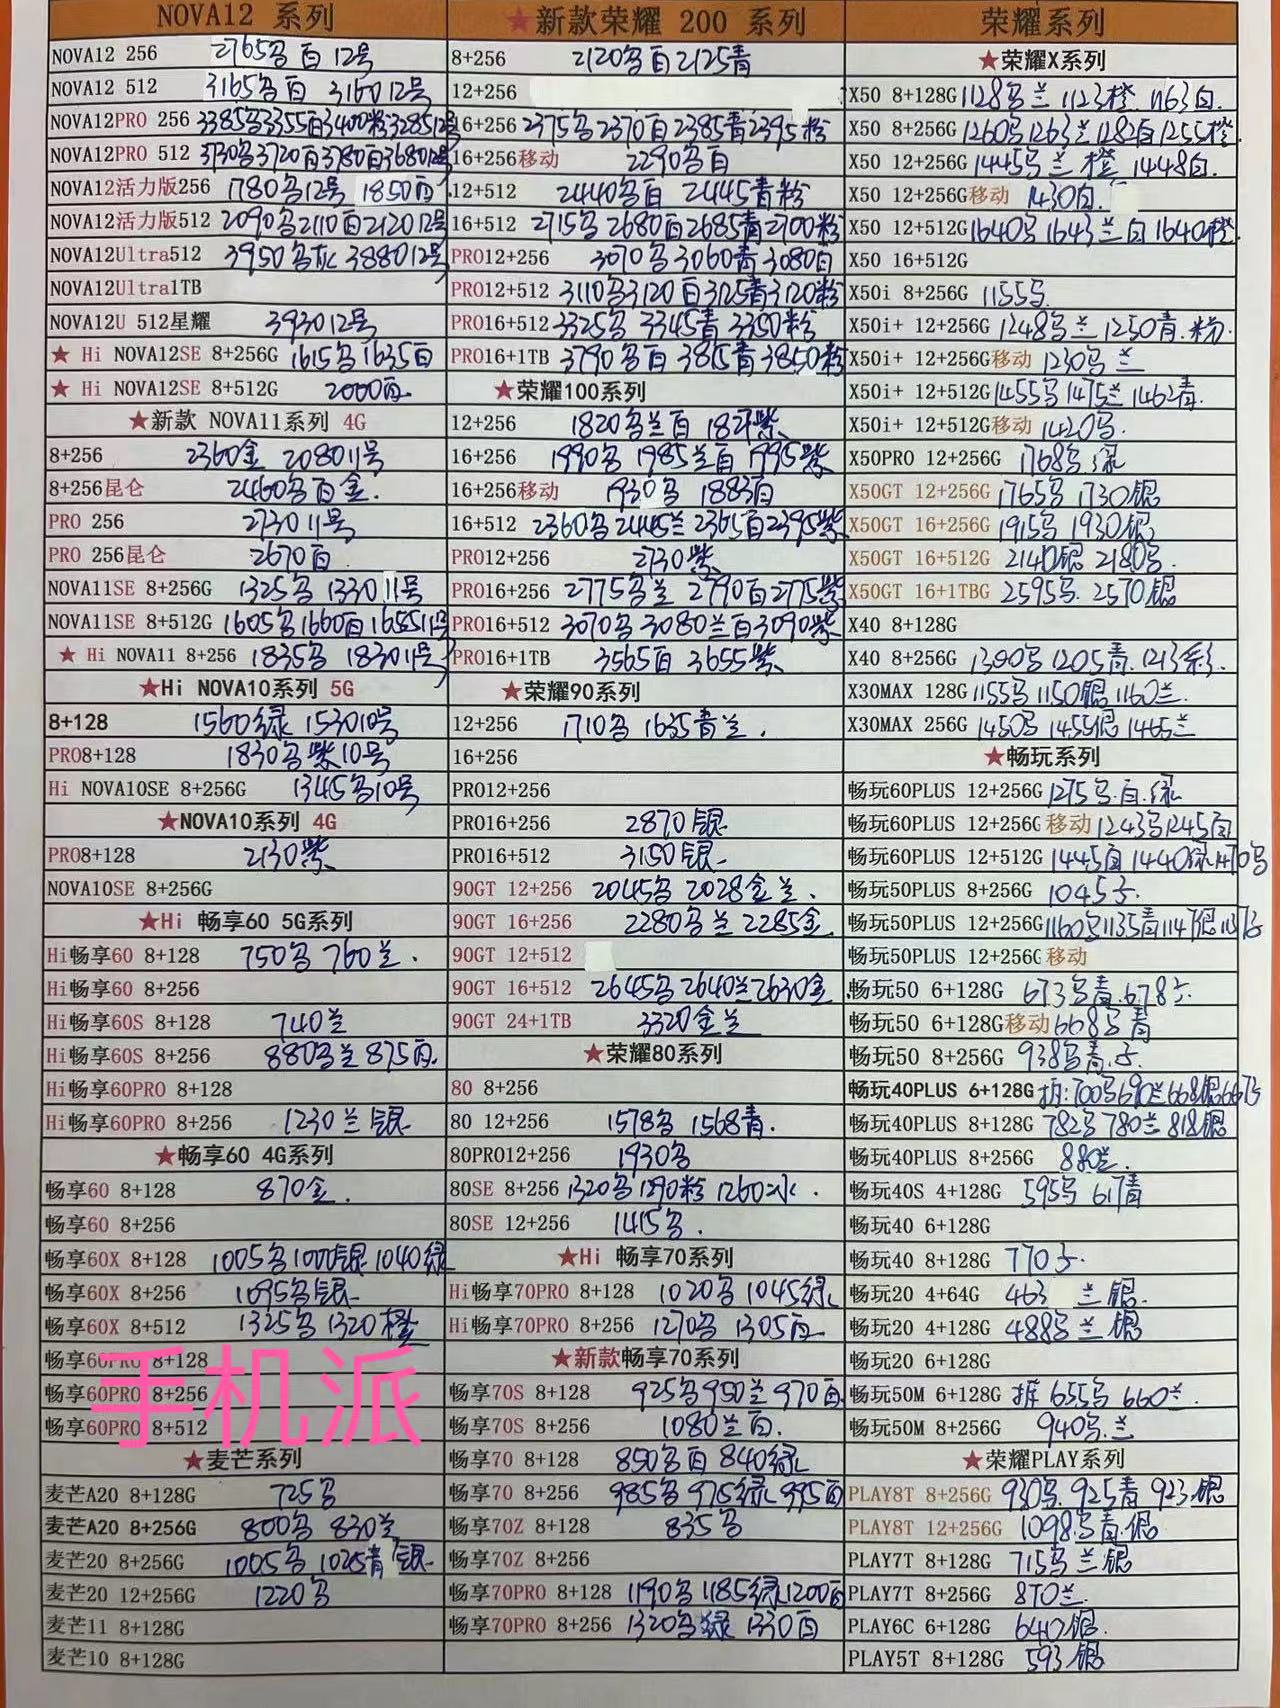 NOVA12 系列
NOVA12 256 2765 12号
NOVA12 512 3165 3160 12号
NOVA12PRO 256 3385 3355 3400粉3285 12号
NOVA12PRO 512 3730 3720 3780 3680 12号
NOVA12活力版256 1780 12号 1850
NOVA12活力版512 2090 2110 2120 12号
NOVA12Ultra512 3950 3880 12号
NOVA12Ultra1TB
NOVA12U 512星耀 3930 12号
★ Hi NOVA12SE 8+256G 1615 1635白
★ Hi NOVA12SE 8+512G 2000白
★新款 NOVA11系列 4G
8+256 2360金 2080 11号
8+256昆仑 2460 白金.
PRO 256 2730 11号
PRO 256昆仑 2670白
NOVA11SE 8+256G 1325 1330 11号
NOVA11SE 8+512G 1605 1660白1655 11号
★ Hi NOVA11 8+256 1835 1830 11号
★Hi NOVA10系列 5G
8+128 1560绿 1530 10号
PRO8+128 1830 紫10号
Hi NOVA10SE 8+256G 1345 10号
★NOVA10系列 4G
PRO8+128 2130紫
NOVA10SE 8+256G
★Hi 畅享60 5G系列
Hi畅享60 8+128 750 760兰.
Hi畅享60 8+256
Hi畅享60S 8+128 740兰
Hi畅享60S 8+256 880 兰 875白.
Hi畅享60PRO 8+128
Hi畅享60PRO 8+256 1230兰银
★畅享60 4G系列
畅享60 8+128 870金.
畅享60 8+256
畅享60X 8+128 1005 1000银 1040绿
畅享60X 8+256 1095 银
畅享60X 8+512 1325 1320橙
畅享60PRO 8+128
畅享60PRO 8+256
畅享60PRO 8+512
手机派
★麦芒系列
麦芒A20 8+128G 725
麦芒A20 8+256G 800 830兰
麦芒20 8+256G 1005 1025青 银
麦芒20 12+256G 1220
麦芒11 8+128G
麦芒10 8+128G
★新款荣耀 200 系列
8+256 2120 白2125青
12+256
16+256 2375 2370白2385青2395粉
16+256移动 2290 白
12+512 2440 白 2445青粉
16+512 2715 2680白2685青2700粉
PRO12+256 3070 3060青3080白
PRO12+512 3110 3120白3125青3120粉
PRO16+512 3325 3345青 3350粉
PRO16+1TB 3790 白 3815青3850粉
★荣耀100系列
12+256 1820 兰白 紫
16+256 1990 1985兰白 1995紫
16+256移动 1930 1883白
16+512 2360 2445兰 2365白2395紫
PRO12+256 2730紫
PRO16+256 2775 兰 2790白2775紫
PRO16+512 3070 3080兰白3090紫
PRO16+1TB 3565白 3655紫
★荣耀90系列
12+256 1710 1635青兰.
16+256
PRO12+256
PRO16+256 2870银
PRO16+512 3150银
90GT 12+256 2045 2028金兰.
90GT 16+256 2280 兰2285金
90GT 12+512
90GT 16+512 2645 2640兰2630金
90GT 24+1TB 3320金兰
★荣耀80系列
80 8+256
80 12+256 1578 1568青.
80PRO12+256 1930
80SE 8+256 1320 1290粉 1260冰.
80SE 12+256 1415 .
★Hi 畅享70系列
Hi畅享70PRO 8+128 1020 1045绿
Hi畅享70PRO 8+256 1270 1305白
★新款畅享70系列
畅享70S 8+128 925 950兰970白
畅享70S 8+256 1080兰白.
畅享70 8+128 850 白 840绿
畅享70 8+256 985 975绿995白
畅享70Z 8+128 835
畅享70Z 8+256
畅享70PRO 8+128 1190 1185绿1200白
畅享70PRO 8+256 1320 绿 1330白
荣耀系列
★荣耀X系列
X50 8+128G 1128 兰 1123橙. 1163白.
X50 8+256G 1260 1263兰1282白1255橙.
X50 12+256G 1445 兰 橙 1448白.
X50 12+256G移动 1430白.
X50 12+512G 1640 1643兰白1640橙.
X50 16+512G
X50i 8+256G 1155
X50i+ 12+256G 1248 兰1250青.粉
X50i+ 12+256G移动 1230 兰
X50i+ 12+512G 1455 1475兰1462青.
X50i+ 12+512G移动 1420
X50PRO 12+256G 1768 绿
X50GT 12+256G 1765 1730银
X50GT 16+256G 1915 1930银
X50GT 16+512G 2140银 2180
X50GT 16+1TBG 2595 2570银
X40 8+128G
X40 8+256G 1205青.
X30MAX 128G 1155 1150银1160兰.
X30MAX 256G 1450 1455银 1465兰
★畅玩系列
畅玩60PLUS 12+256G 1275 .白.绿
畅玩60PLUS 12+256G 移动 1243 1245白
畅玩60PLUS 12+512G 1445白1440绿1470
畅玩50PLUS 8+256G 1045
畅玩50PLUS 12+256G 1160 1135青1147银
畅玩50PLUS 12+256G 移动
畅玩50 6+128G 673 青.678
畅玩50 6+128G移动 668 青
畅玩50 8+256G 938 青.
畅玩40PLUS 6+128G 700 690兰668银
畅玩40PLUS 8+128G 782 780兰 818银
畅玩40PLUS 8+256G 880兰.
畅玩40S 4+128G 595 617青
畅玩40 6+128G
畅玩40 8+128G 770
畅玩20 4+64G 463 兰 银.
畅玩20 4+128G 488 兰 银
畅玩20 6+128G
畅玩50M 6+128G 655 660兰.
畅玩50M 8+256G 940 .兰
★荣耀PLAY系列
PLAY8T 8+256G 930 925青 923银
PLAY8T 12+256G 1098 青.银
PLAY7T 8+128G 715 兰银
PLAY7T 8+256G 870兰.
PLAY6C 6+128G 640银.
PLAY5T 8+128G 593银